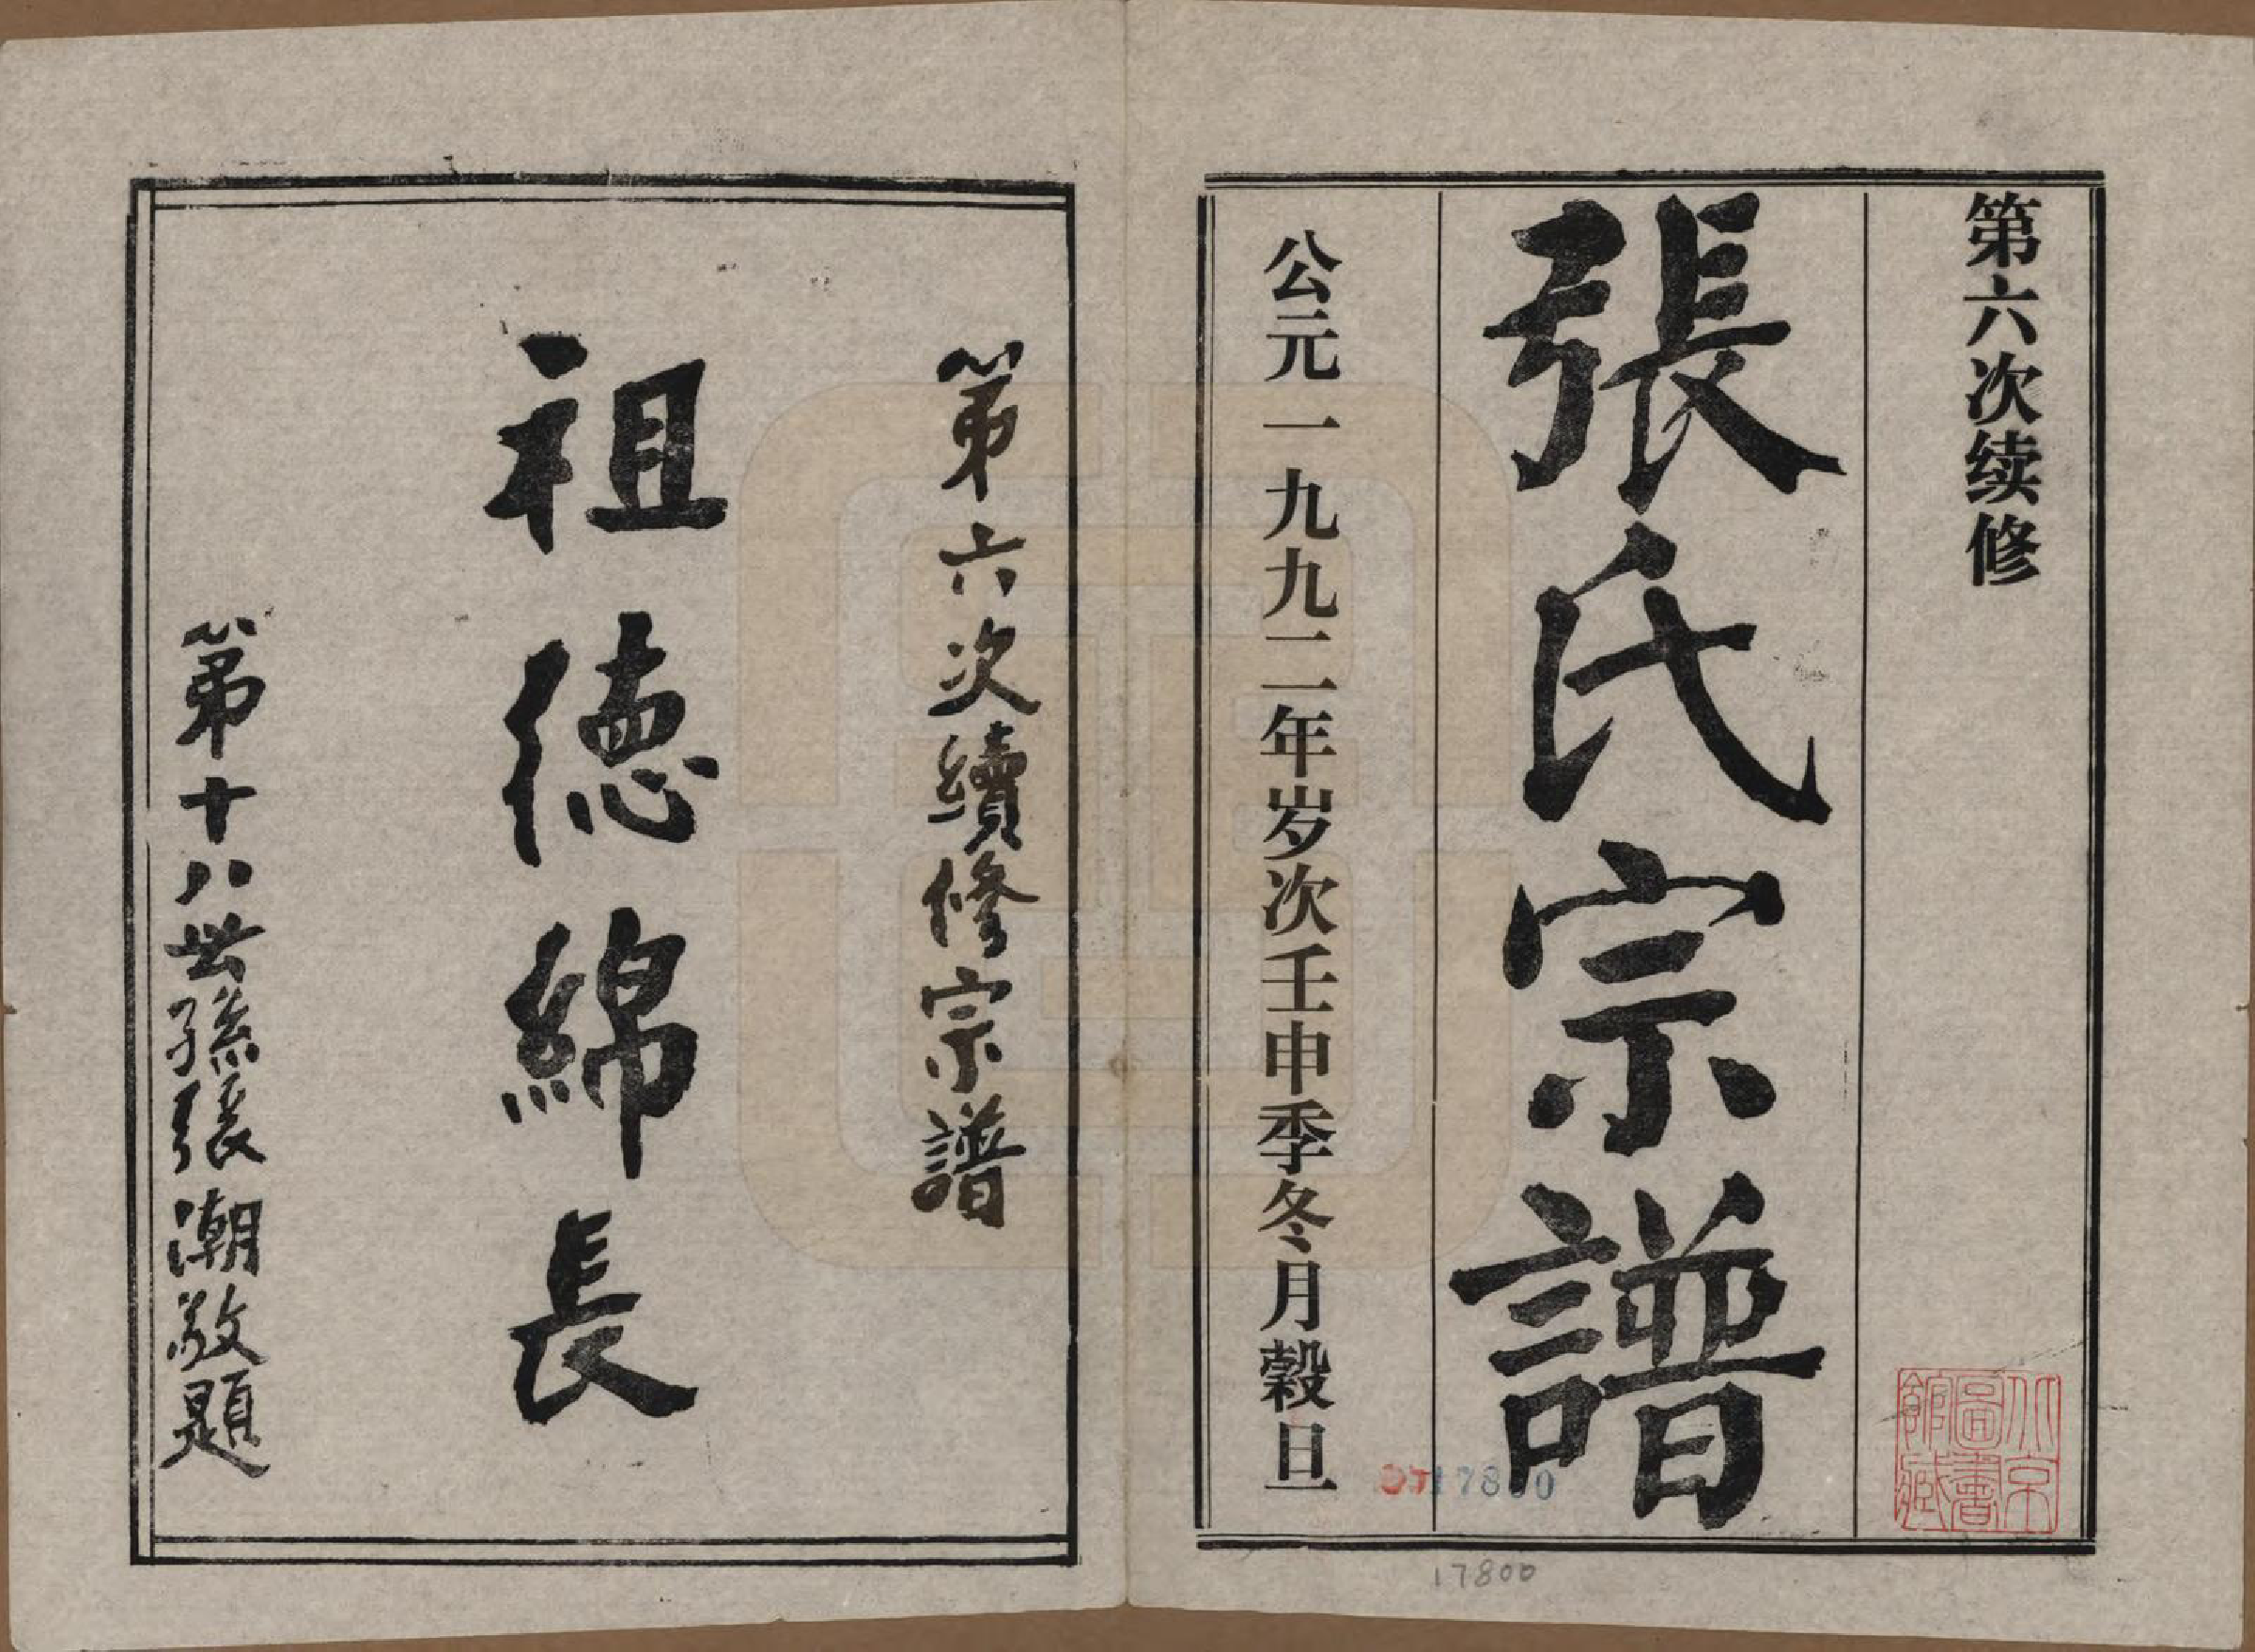 第六次续修
張氏宗譜
公元一九九二年岁次壬申季冬月穀旦
北京
圖書
館藏
17800
17800
第六次續修宗譜
祖德綿長
第十八世孫張潮敬題